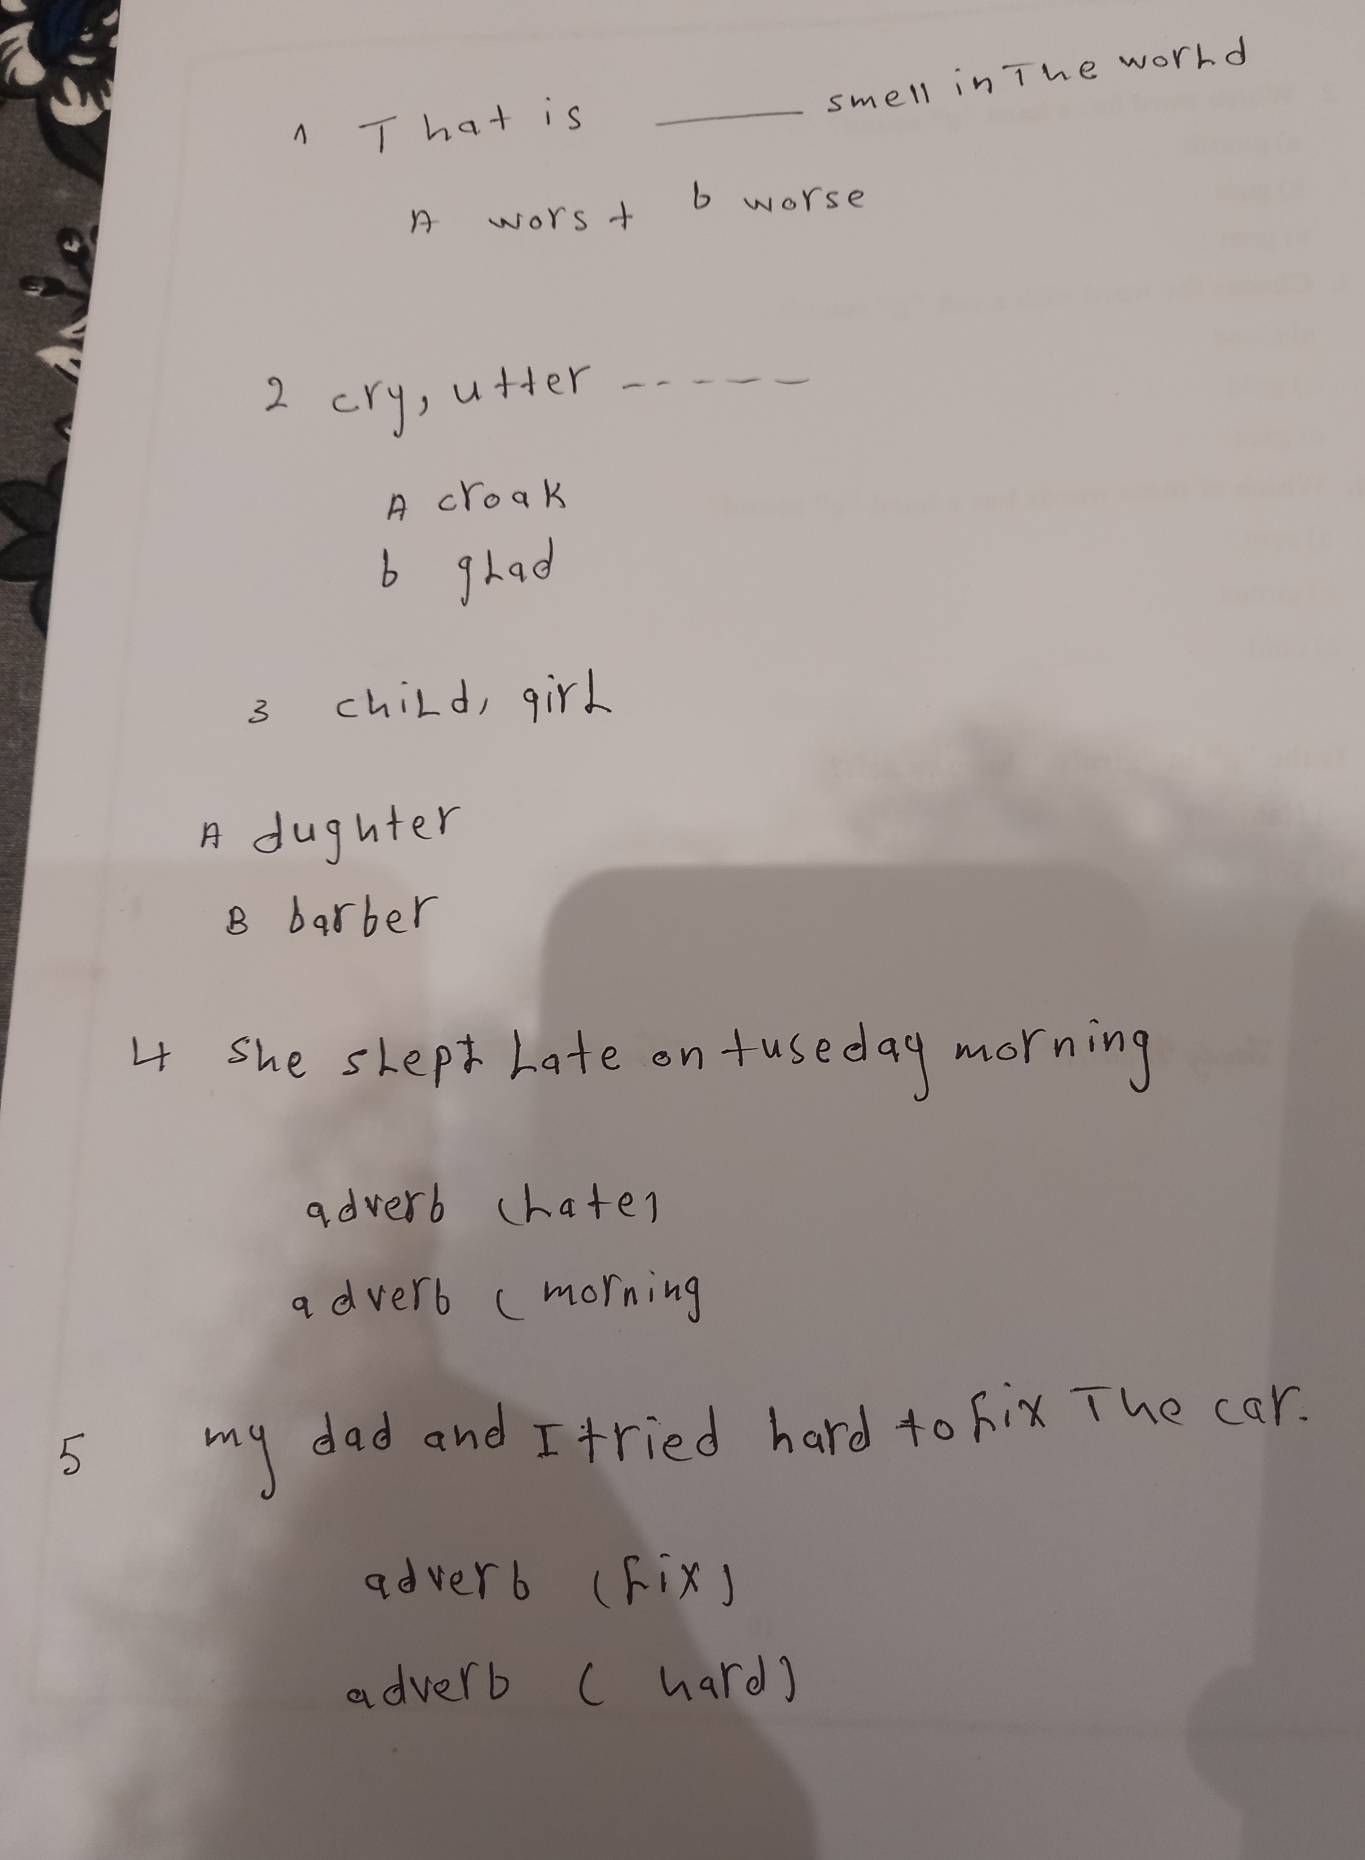 1 That is ______ smell in The world
A worst b worse
2 cry, utter -----
A croak
b glad
3 child, girl
A dughter
B barber
4 She slept Late on tuseday morning
adverb (Late)
adverb ( morning
5 my dad and I tried hard to fix The car.
adverb (fix)
adverb ( hard)